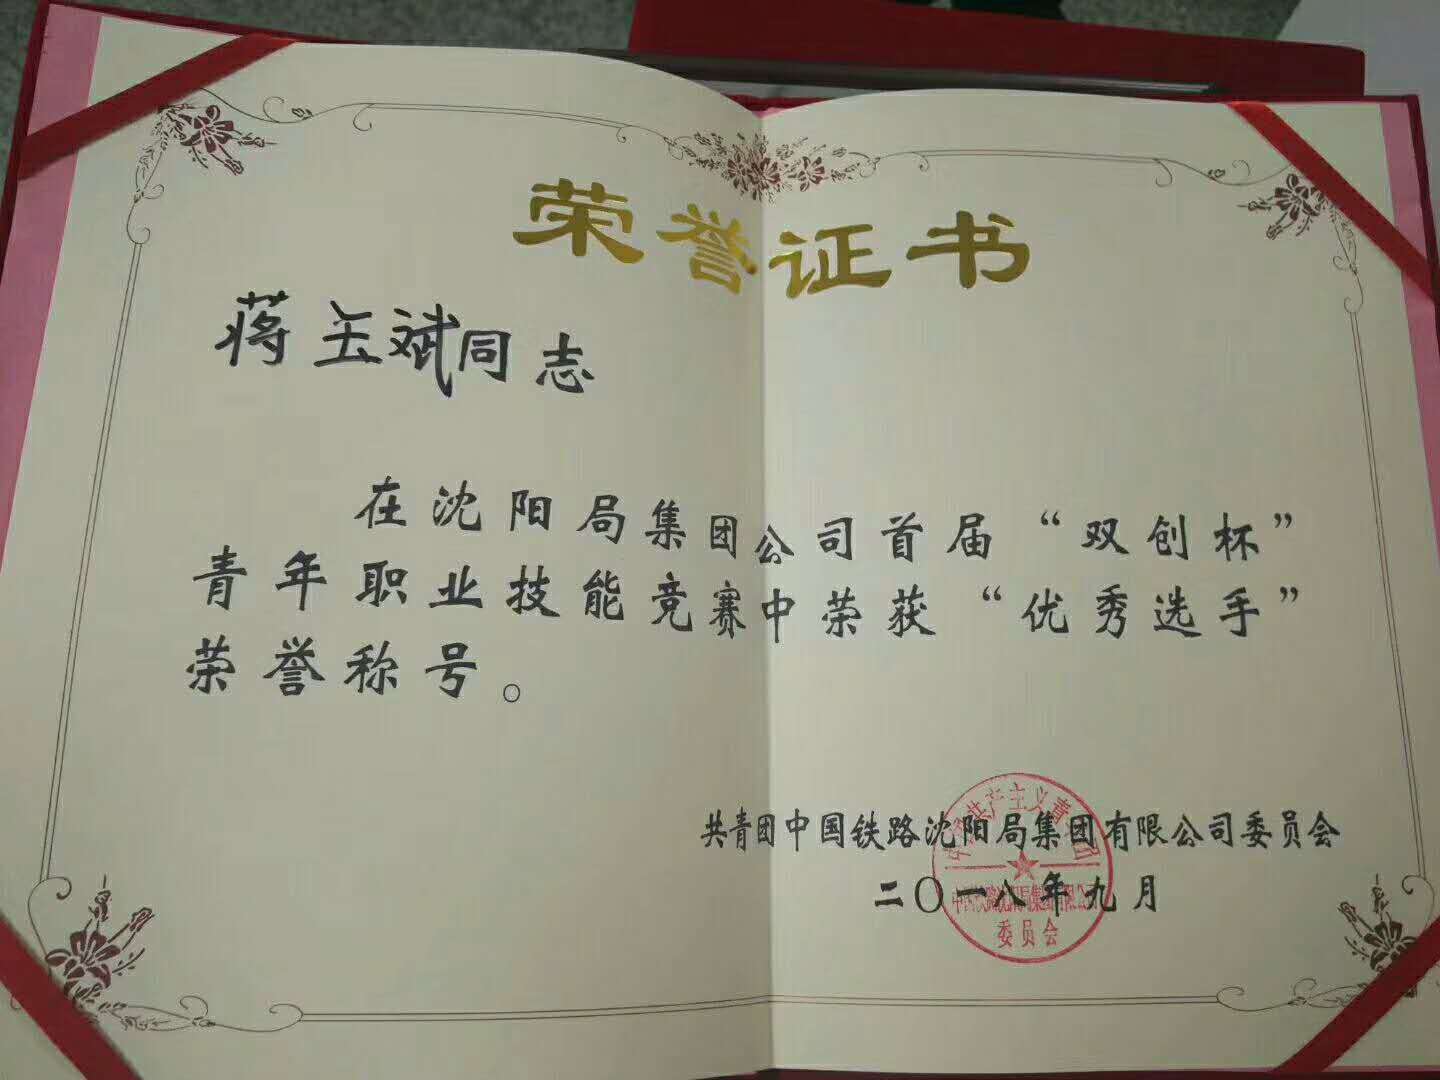 荣誉证书
蒋玉斌同志
在沈阳局集团公司首届“双创杯”
青年职业技能竞赛中荣获“优秀选手”
荣誉称号。
共青团中国铁路沈阳局集团有限公司委员会
二〇一八年九月
中国共产主义青年团
中国铁路沈阳局集团有限公司
委员会